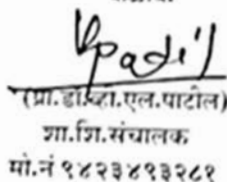 Vpadil
(प्रा.डॉ.व्हा.एल.पाटील)
शा.शि.संचालक
मो.नं ९४२३४९३२८१